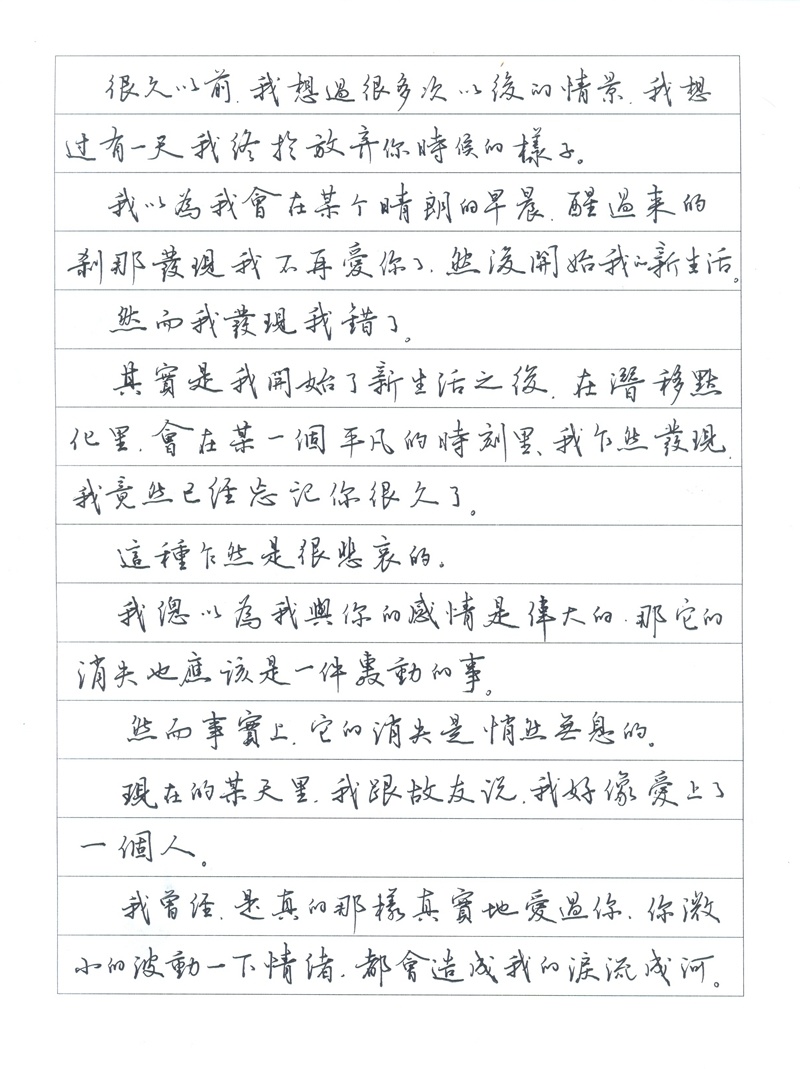 很久以前,我想過很多次以後的情景,我想
过有一天我终於放弃你時候的樣子。
我以為我會在某个晴朗的早晨,醒過来的
刹那發現我不再愛你了,然後開始我的新生活。
然而我發現我錯了。
其實是我開始了新生活之後,在潛移默
化里,會在某一個平凡的時刻里、我乍然發現,
我竟然已经忘记你很久了。
這種乍然是很悲哀的。
我總以為我與你的感情是偉大的,那它的
消失也應该是一件轟動的事。
然而事實上,它的消失是悄然無息的。
現在的某天里,我跟故友说,我好像愛上了
一個人。
我曾经,是真的那樣真實地愛過你,你微
小的波動一下情绪,都會造成我的淚流成河。